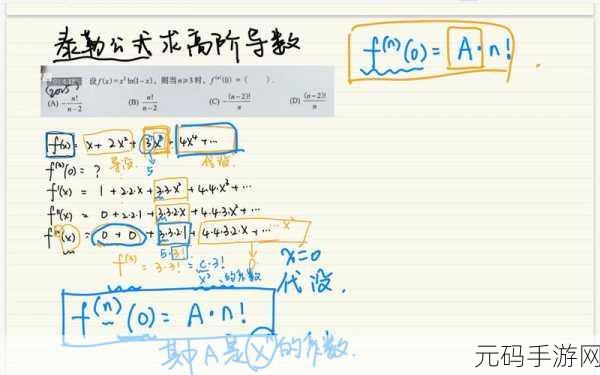 泰勒公式求高阶导数
f⁽ⁿ⁾(0) = A·n!
设f(x)=x²ln(1-x), 则当n≥3时, f⁽ⁿ⁾(0)=( ).
(A) -n!/(n-2) (B) n!/(n-2) (C) -(n-2)!/n (D) (n-2)!/n
f(x) = x + 2x² + 3x³ + 4x⁴ + ⋯
导没 5 代没
f⁽³⁾(0) = ?
f'(x) = 1 + 2·2·x + 3·3·x² + 4·4·x³ + ⋯
f''(x) = 0 + 2·2·1 + 3·3·2·x + 4·4·3·x² + ⋯
f'''(x) = 0 + 0 + 3·3·2·1 + 4·4·3·2·x + ⋯
5·3! 0 x=0
= 3·3! = C·3! 代没.
x³ 的系数
f⁽ⁿ⁾(0) = A·n!
其中 A 是 xⁿ 的系数.
元码手游网